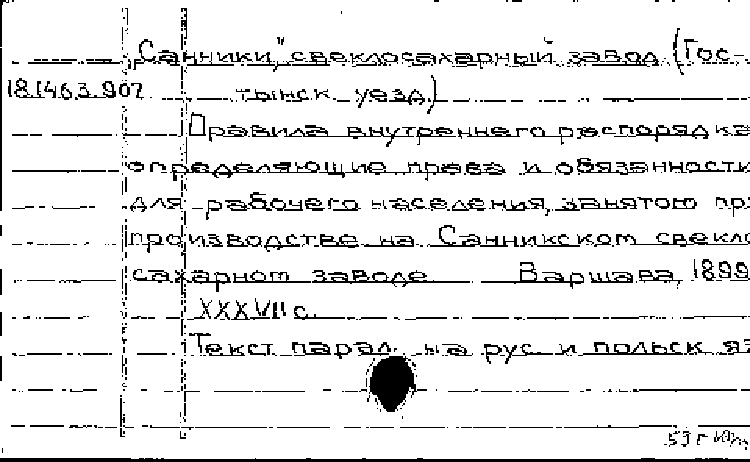 „Санники," свеклосахарный завод (Гос-
18.1463.907 тынск. уезд.)
Правила внутреннего распорядка
определяющие права и обязанности
для рабочего населения, занятого пр
производстве на Санникском свекло
сахарном заводе. Варшава, 1899
XXXVII с.
Текст парал. на рус. и польск яз